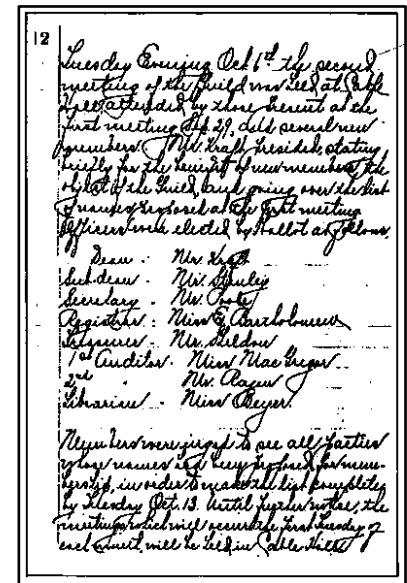 12
Tuesday Evening Oct 6th the second
meeting of the Guild was held at Cable
Hall, attended by those present at the
first meeting Sep. 29, and several new
members. Mr. Kraft presided, stating
briefly for the benefit of new members the
object of the Guild, and going over the list
of names proposed at the first meeting
Officers were elected by ballot as follows,
Dean. Mr. Kraft
Sub-dean. Mr. Stanley
Secretary. Mr. Pooley
Registrar. Miss E. Bartholomew
Treasurer. Mr. Sheldon
1st Auditor. Miss MacGregor
2nd " Mr. Ragan
Librarian. Miss Beyer.
Members were urged to see all parties
whose names had been proposed for mem-
bership, in order to make the list completed
by Tuesday Oct. 13. Until further notice, the
meetings which will occur the first Tuesday of
each month, will be held in Cable Hall.